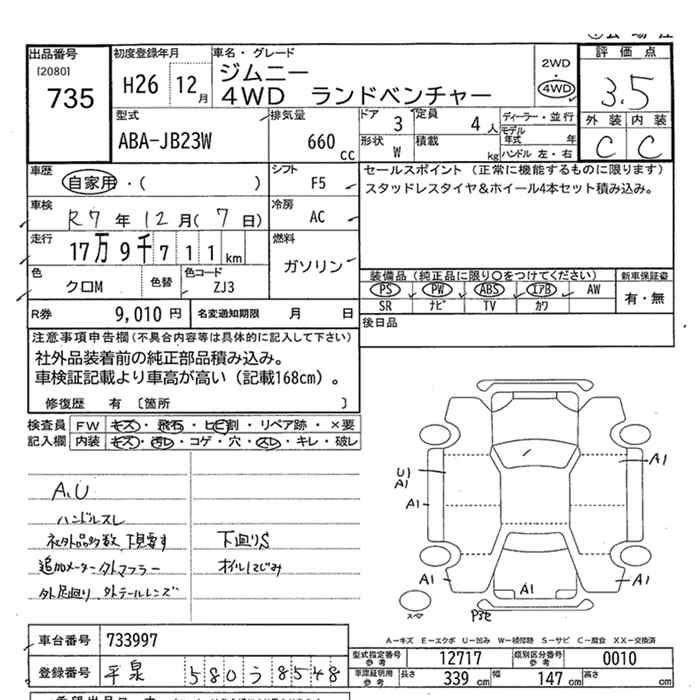 出品番号
[2080]
735
初度登録年月
H26 12月
車名・グレード
ジムニー
4WD ランドベンチャー
2WD
・
4WD
評価点
3.5
外装 内装
C C
型式
ABA-JB23W
排気量
660 cc
ドア 3
定員 4人
形状 W
積載 kg
ディーラー・並行
モデル年式 年
ハンドル 左・右
車歴
自家用・( )
シフト
F5
セールスポイント (正常に機能するものに限ります)
スタッドレスタイヤ&ホイール4本セット積み込み。
車検
R7年12月(7日)
冷房
AC
走行
17万9千711km
燃料
ガソリン
色
クロM
色替
色コード
ZJ3
装備品(純正品に限り○をつけてください)
新車保証書
PS PW ABS エアB AW
SR ナビ TV カワ
有・無
R券 9,010円
名変通知期限 月 日
後日品
注意事項申告欄(不具合内容等は具体的に記入して下さい)
社外品装着前の純正部品積み込み。
車検証記載より車高が高い(記載168cm)。
修復歴 有 〔箇所 〕
検査員記入欄
FW キズ・飛石・ヒビ割・リペア跡・×要
内装 キズ・汚レ・コゲ・穴・スレ・キレ・破レ
A,U
ハンドルスレ
社外品多数、下見要す
追加メーター、外マフラー
外足廻り、外テールレンズ
下廻りS
オイルにじみ
U1
A1
A1
A1
A1
A1
A1
スペア
A-キズ E-エクボ U-凹み W-補修跡 S-サビ C-腐食 XX-交換済
車台番号 733997
登録番号 平泉 580う8548
型式指定番号 参考 12717
類別区分番号 参考 0010
車庫証明用 参考
長さ 339 cm
幅 147 cm
高さ cm